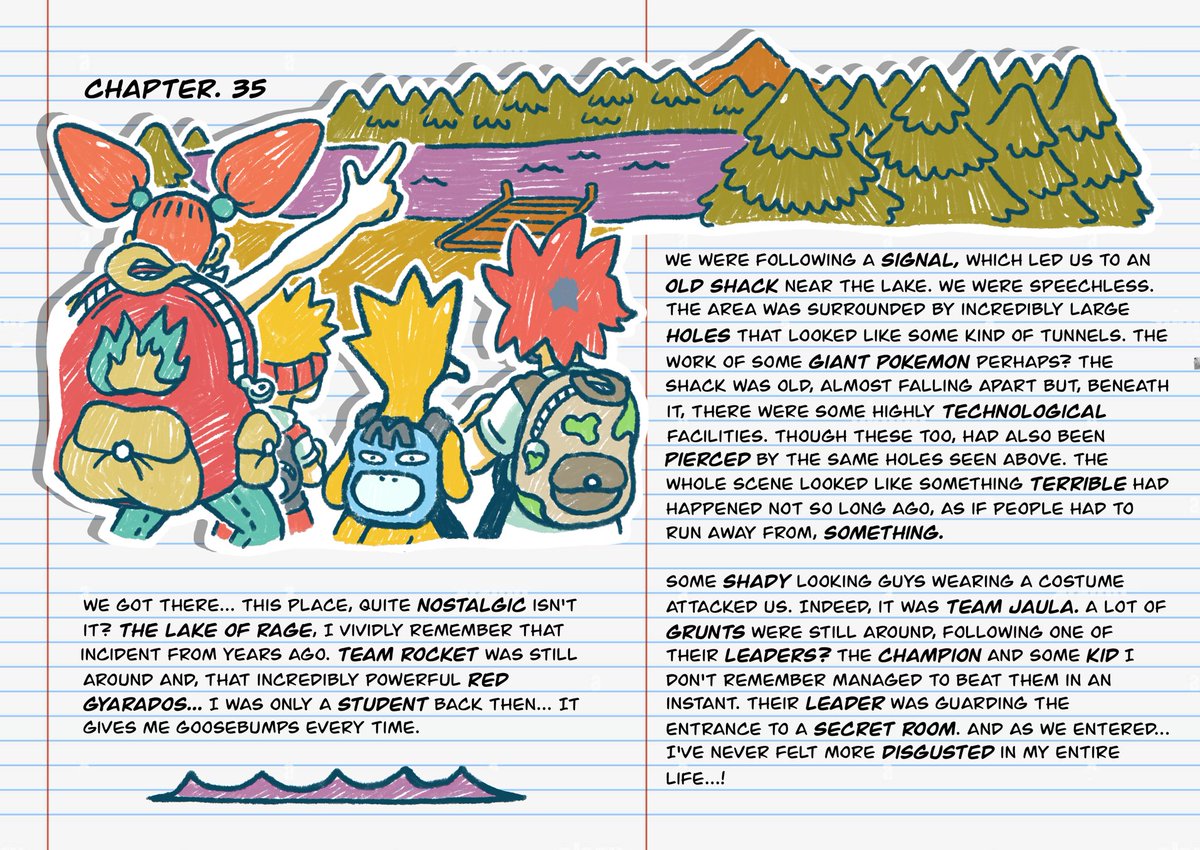 CHAPTER. 35
WE GOT THERE... THIS PLACE, QUITE NOSTALGIC ISN'T
IT? THE LAKE OF RAGE, I VIVIDLY REMEMBER THAT
INCIDENT FROM YEARS AGO. TEAM ROCKET WAS STILL
AROUND AND, THAT INCREDIBLY POWERFUL RED
GYARADOS... I WAS ONLY A STUDENT BACK THEN... IT
GIVES ME GOOSEBUMPS EVERY TIME.
WE WERE FOLLOWING A SIGNAL, WHICH LED US TO AN
OLD SHACK NEAR THE LAKE. WE WERE SPEECHLESS.
THE AREA WAS SURROUNDED BY INCREDIBLY LARGE
HOLES THAT LOOKED LIKE SOME KIND OF TUNNELS. THE
WORK OF SOME GIANT POKEMON PERHAPS? THE
SHACK WAS OLD, ALMOST FALLING APART BUT, BENEATH
IT, THERE WERE SOME HIGHLY TECHNOLOGICAL
FACILITIES. THOUGH THESE TOO, HAD ALSO BEEN
PIERCED BY THE SAME HOLES SEEN ABOVE. THE
WHOLE SCENE LOOKED LIKE SOMETHING TERRIBLE HAD
HAPPENED NOT SO LONG AGO, AS IF PEOPLE HAD TO
RUN AWAY FROM, SOMETHING.
SOME SHADY LOOKING GUYS WEARING A COSTUME
ATTACKED US. INDEED, IT WAS TEAM JAULA. A LOT OF
GRUNTS WERE STILL AROUND, FOLLOWING ONE OF
THEIR LEADERS? THE CHAMPION AND SOME KID I
DON'T REMEMBER MANAGED TO BEAT THEM IN AN
INSTANT. THEIR LEADER WAS GUARDING THE
ENTRANCE TO A SECRET ROOM. AND AS WE ENTERED...
I'VE NEVER FELT MORE DISGUSTED IN MY ENTIRE
LIFE...!